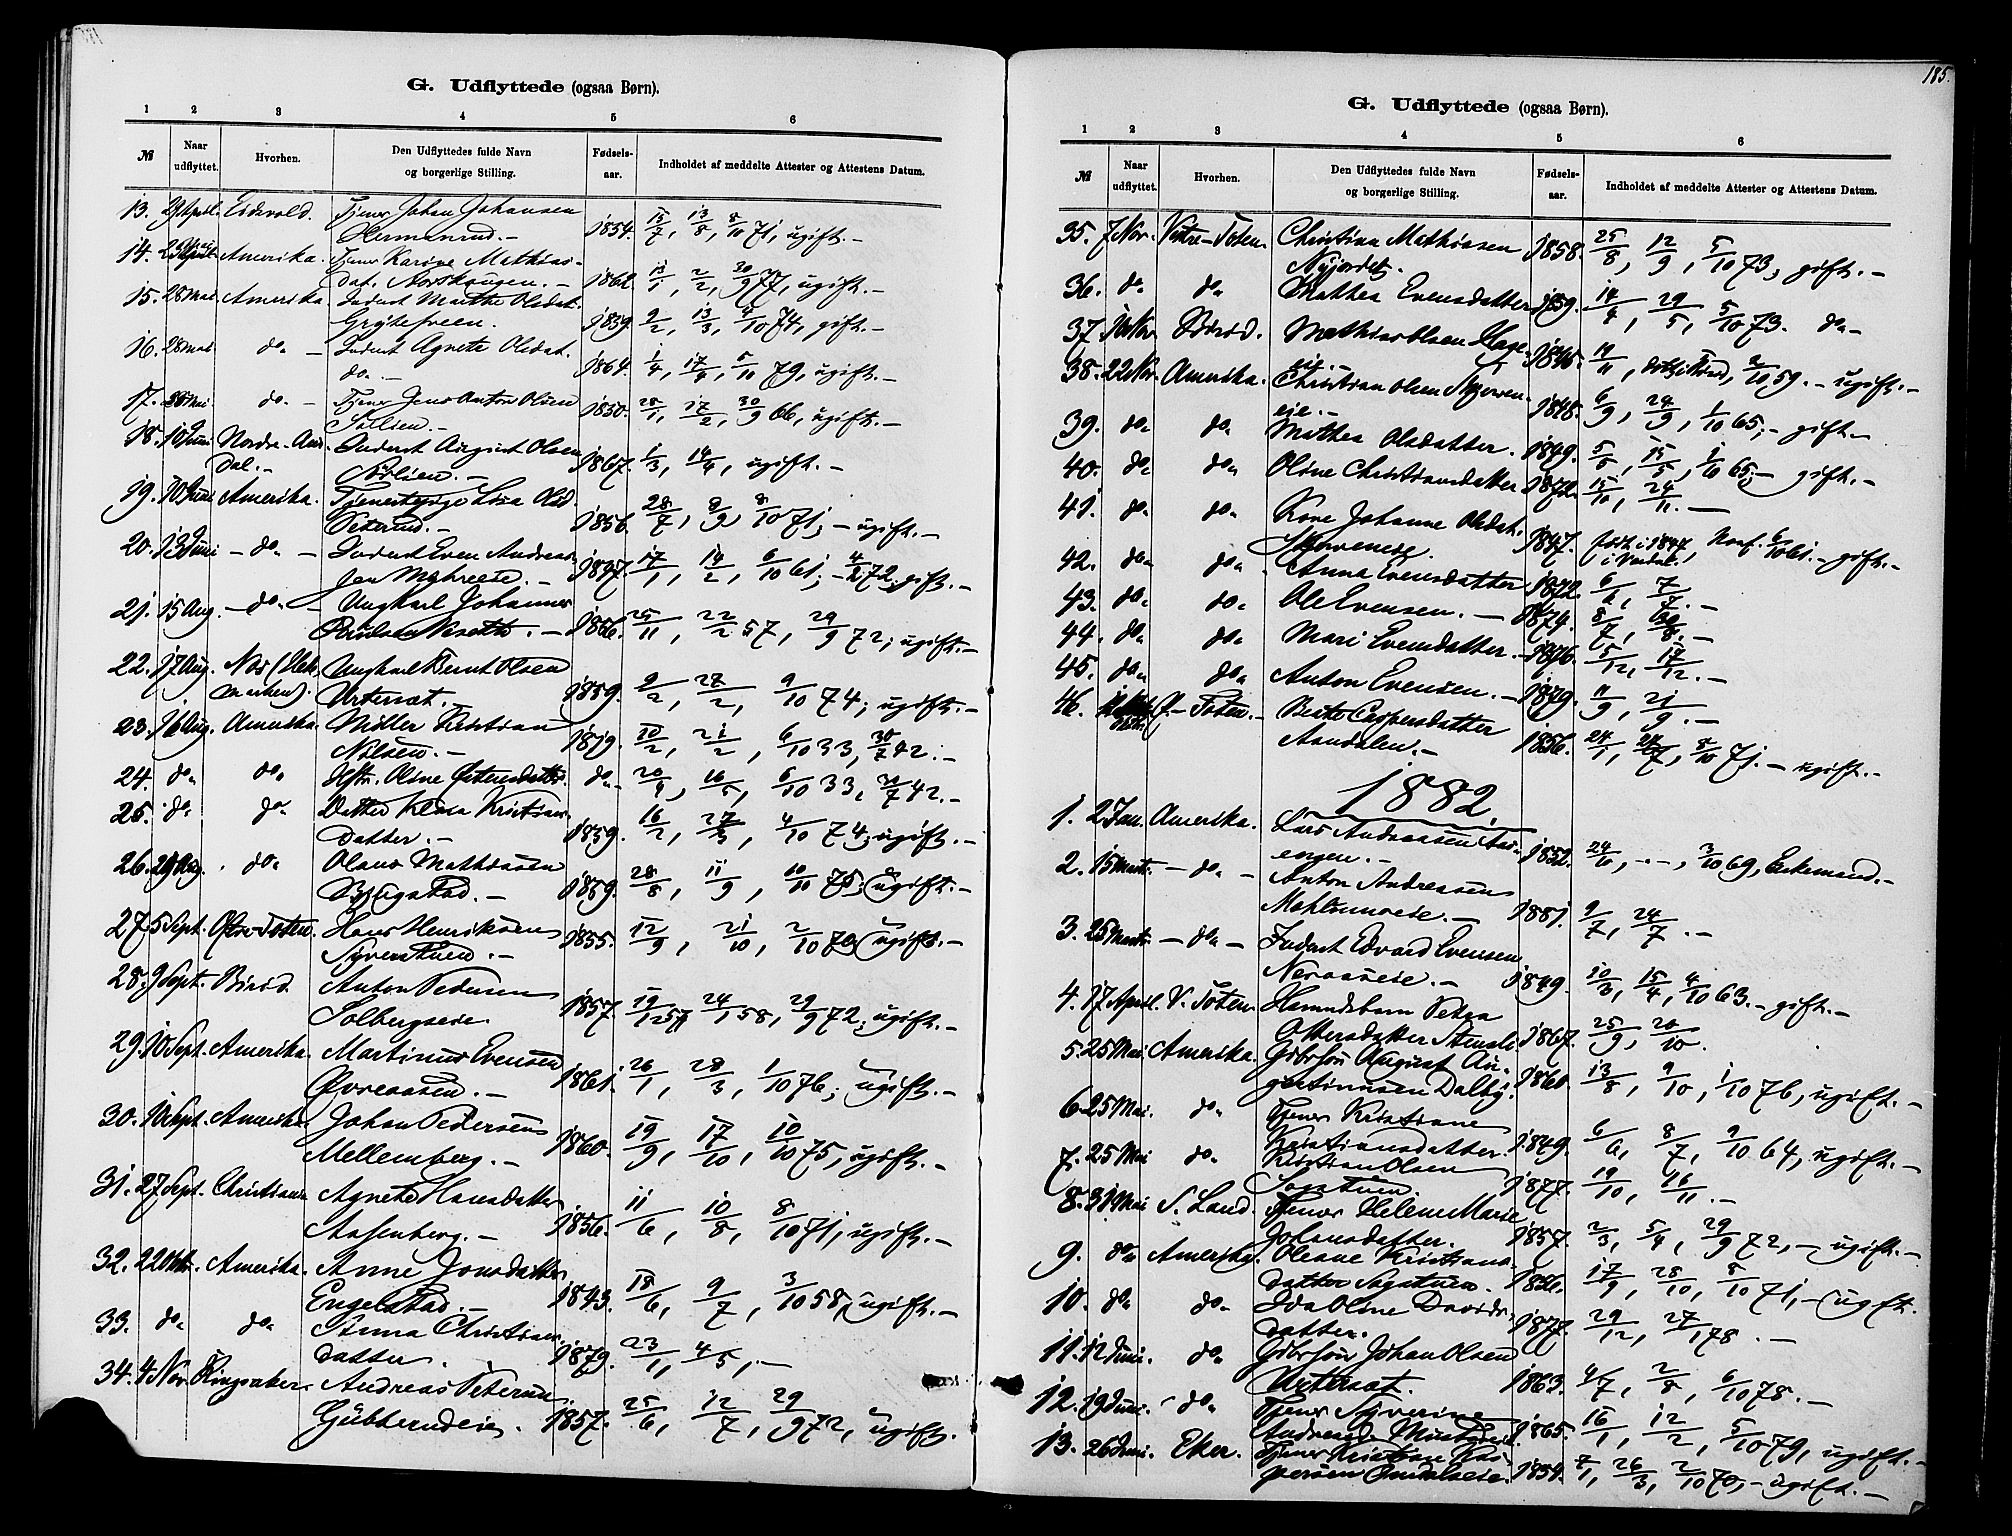 G. Udflyttede (ogsaa Børn).
1 2 3 4 5 6
№ Naar udflyttet. Hvorhen. Den Udflyttedes fulde Navn og borgerlige Stilling. Fødsels-aar. Indholdet af meddelte Attester og Attestens Datum.
13. Eidsvold. Tjener Johan Johansen
Hermanrud.- 1854. 13/8, 8/10 71, ugift.-
14. Amerika. Tjener Karine Mathias-
dat. 1862. 2/2, 30/9 77, ugift.-
15. 28 Mai Amerika Inderst Marthe Olsdat.
1839. 2/2, 13/3, 4/10 74, gift.-
16. 28 Mai do. - Inderst Agnete Olsdat.
do.- 1864. 1/4, 17/4, 5/10 79, ugift.-
17. do. - Tjener Jens Anton Olsen
1850. 28/1, 17/2, 30/9 66, ugift.-
18. 10 Juni Nordre-Aur- Inderst August Olsen
dal.- 1867. 1/3, 14/4, ugift.-
19. 10 Juni Amerika. Tjenestepige Lisa Olsd.
1856. 28/7, 8/9, 8/10 71; - ugift.-
20. 13 Juni - do. - Inderst Even Andreas-
sen 1847. 17/1, 14/2, 6/10 61; - 4/2 72, gift.-
21. 15 Aug. - do. - Ungkarl Johannes
1856. 25/11, 22/2 57, 29/9 72; ugift.-
22. 17 Aug. Nes (Hede-
marken). Ungkarl Bernt Olsen
1859. 2/2, 27/2, 9/10 74; ugift.-
23. 16 Aug. Amerika. Møller Kristian
Nilsen.- 1819. 10/2, 21/2, 6/10 33, 30/7 42.-
24. do. do. Hstr. Oline do. 20/4, 16/5, 6/10 33, 30/7 42.-
25. do. do. Datter Klara Kristians-
datter.- 1859. 16/2, 27/3, 4/10 74; ugift.-
26. do. Olaus Mathiasen
1859. 28/8, 11/9, 10/10 75; ugift.-
27. 5 Sept. Østre-Toten. Hans Henriksen
Syverstuen.- 1855. 12/9, 21/10, 2/10 70, ugift.-
28. 9 Sept. Biri Anton Pedersen
Solbergseie. 1857. 19/12 57, 24/1 58, 29/9 72; ugift.-
29. 10 Sept. Amerika. Martinus Evensen
Øvreaasen.- 1861. 26/1, 28/3, 1/10 76; ugift.-
30. Sept. Amerika. Johan Pedersen
Mellemberg.- 1860. 19/9, 17/10, 10/10 75, ugift.-
31. 27 Sept. Christiania Agnete Hansdatter
1856. 11/6, 10/8, 8/10 71, ugift.-
32. 22 Oktr. Amerika. Anne Jonsdatter
Engelstad.- 1843. 18/6, 9/7, 3/10 58, ugift.-
33. do. do. Anna Christians-
datter. 1879. 23/1, 4/5, -
34. 4 Nov. Ringsaker. Andreas Petersen
1857. 25/6, 12/7, 29/9 72, ugift.
185.
G. Udflyttede (ogsaa Børn).
1 2 3 4 5 6
№ Naar udflyttet. Hvorhen. Den Udflyttedes fulde Navn og borgerlige Stilling. Fødsels-aar. Indholdet af meddelte Attester og Attestens Datum.
35. 7 Nov. Vestre-Toten. Christian Mathiasen
Nyjordet. 1858. 25/8, 12/9, 5/10 73, gift.-
36. do. do. Mathea Evensdatter 1859. 14/4, 29/5, 5/10 73. do.-
37. Nov. Mathias Olsen Hage-
eie.- 1845. 19/11, 2/10 59. - ugift.-
38. 22 Nov. Amerika. Christian Olsen
eie.- 1848. 6/9, 24/9, 1/10 65, - gift.-
39. do. do. Mathea Olsdatter. 1849. 5/5, 15/5, 1/10 65, - gift.-
40. do. do. Oline Christiansdatter 1872. 15/10, 24/11.-
41. do. do. Kone Johanne Olsdat.
1847. født i 1847, Konf. 6/10 61.- gift.-
42. do. do. Anna Evensdatter 1872. 6/6, 7/7.-
43. do. do. Ole Evensen.- 1874. 8/7, 30/8.-
44. do. do. Mari Evensdatter.- 1876. 5/12, 17/12.-
45. do. do. Anton Evensen.- 1879. 11/9, 21/9.-
46. Ø-Toten.- Beate Caspersdatter
1856. 24/1, 8/10 71.- ugift.-
1882.
1. 2 Jan. Amerika. Lars Andreassen
1852. 24/11, - - , 3/10 69, Enkemand.-
2. 15 Marts - do. - Anton Andreassen
1881. 9/7, 24/7.-
3. 25 Marts - do. - Inderst Edvard Evensen
1849. 10/3, 15/4, 4/10 63.- gift.-
4. 17 April. V. Toten. Petra
Ottersdatter 1867. 25/9, 20/10.
5. 25 Mai Amerika. Gbrsøn August Au-
gustinussen Dalby. 1860. 13/8, 9/10, 1/10 76, ugift.-
6. 25 Mai. do. Tjener Kristiane
Kristiansdatter. 1849. 6/6, 8/7, 9/10 64, ugift.-
7. 25 Mai do. Kristian Olsen
1877. 19/10, 16/11.-
8. 31 Mai S. Land. Tjener Helene Marie
Johansdatter. 1857. 2/3, 5/4, 29/9 72, - ugift.-
9. do. Amerika. Oleane Kristians-
datter 1856. 17/9, 28/10, 8/10 71, - ugift.
10. do. do. Ida Oline Davids-
datter. 1877. 29/12, 27/1 78.-
11. 12 Juni. do. Gbrsøn Johan Olsen
1863. 4/7, 2/8, 6/10 78.-
12. 19 Juni. - do. Tjener Syverine
1865. 16/1, 12/2, 5/10 79, ugift.-
13. 26 Juni. Eker. Tjener Kristian Kas-
persen 1854. 7/1, 26/3, 2/10 70, - ugift.-